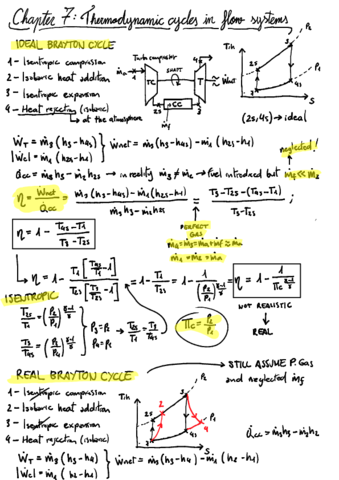 Chapter 7: Thermodynamic cycles in flow systems
IDEAL BRAYTON CYCLE
1 - Isentropic compression
2 - Isobaric heat addition
3 - Isentropic expansion
4 - Heat rejection (isobaric)
↳ at the atmosphere
Turbo compressor
SHAFT
ṁa
TC
T
CC
ṁf
Ẇnet
1
2s
3
4s
T,h
P2
P1
S
(2s, 4s) → ideal
ẆT = ṁ3 (h3-h4s)
|Ẇc| = ṁ1 (h2s-h1)
Ẇnet = ṁ3(h3-h4s) - ṁ1 (h2s-h1)
neglected!
Q̇cc = ṁ3h3 - ṁ2h2s → in reality ṁ3 ≠ ṁ2 → fuel introduced but ṁf << ṁa
η = Ẇnet / Q̇cc = ṁ3(h3-h4s) - ṁ1(h2s-h1) / ṁ3h3 - ṁ2h2s = T3-T2s-(T4s-T1) / T3-T2s ;
PERFECT GAS
η = 1 - T4s-T1 / T3-T2s
↳ η = 1 - T1 [T4s/T1 - 1] / T2s [T3/T2s - 1] = 1 - T1/T2s = 1 - 1 / (P2/P1)^(γ-1/γ) = η = 1 - 1 / Πc^(γ-1/γ)
ISENTROPIC
T2s/T1 = (P2/P1)^(γ-1/γ)
T3/T4s = (P3/P4)^(γ-1/γ)
P2 = P3
P4 = P1
→ T4s/T1 = T3/T2s
Πc = P2/P1
NOT REALISTIC
↓
REAL
REAL BRAYTON CYCLE
→ STILL ASSUME P. Gas
and neglected ṁf
1 - Isentropic compression
2 - Isobaric heat addition
3 - Isentropic expansion
4 - Heat rejection (isobaric)
T,h
P2
P1
3
2
2s
4s
4
S
Q̇cc = ṁ3h3 - ṁ2h2
ẆT = ṁ3 (h3-h4)
|Ẇc| = ṁ1 (h2-h1)
Ẇnet = ṁ3(h3-h4) - ṁ1 (h2-h1)